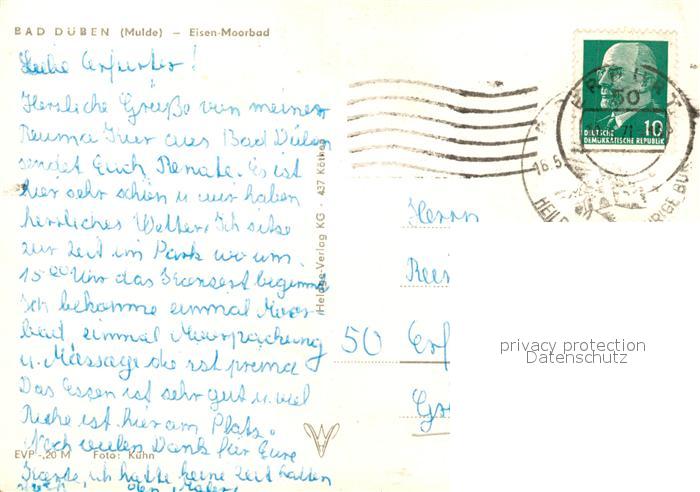 BAD DÜBEN (Mulde) — Eisen-Moorbad
Liebe Erfurter!
Herzliche Grüße von meiner
Reuma Kur aus Bad Düben
sendet Euch Renate. Es ist
hier sehr schön u wir haben
herrliches Wetter. Ich sitze
zur Zeit im Park wo um
15 00 Uhr das Konzert beginnt
Ich bekomme einmal Moor-
bad, einmal Moorpackung
u. Massage die ist prima
Das Essen ist sehr gut u. viel
Ruhe ist hier am Platz.
Noch vielen Dank für Eure
Karte, ich hatte keine Zeit
EVP -,20 M Foto: Kühn
Heldge-Verlag KG · 437 Köthen
50
DEUTSCHE
DEMOKRATISCHE REPUBLIK
10
16.5
Herrn
50 Erf
privacy protection
Datenschutz